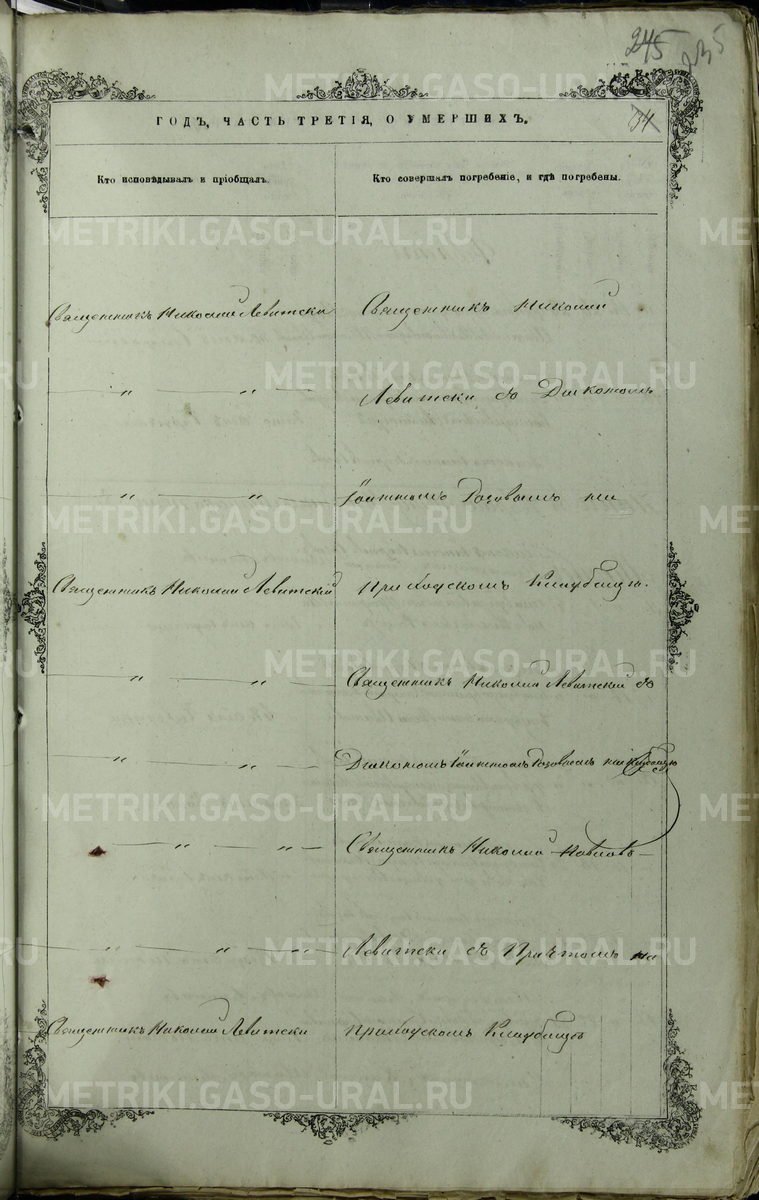 245
235
34
ГОДЪ, ЧАСТЬ ТРЕТІЯ, О УМЕРШИХЪ.
Кто исповѣдывалъ и пріобщалъ.
Кто совершалъ погребеніе, и гдѣ погребены.
Священникъ Николай Левитски
Священникъ Николай
〃 〃
Левитски съ Дьякономъ
〃 〃
Розовымъ на
Священникъ Николай Левитскій
Приходскомъ Кладбищѣ.
〃 〃
Священникъ Николай Левитскій съ
〃 〃
Дьякономъ Розовымъ на Кладбищѣ
〃 〃
Священникъ Николай
〃 〃
Левитски съ Причтомъ на
Священникъ Николай Левитски
Приходскомъ Кладбищѣ
METRIKI.GASO-URAL.RU